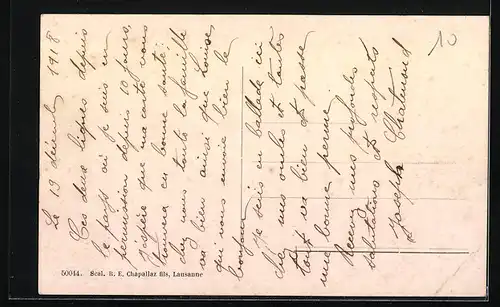 Le 13 décembre 1918
Ces deux lignes depuis
le pays où je suis en
permission depuis 10 jours,
j'espère que ma carte vous
trouvera en bonne santé;
chez nous toute la famille
va bien ainsi que Louise
qui vous envoie bien le
bonjour
Je suis en ballade ici
chez mes oncles et tantes
tout va bien et passe
une bonne permie
Recevez mes profondes
salutations et respects
Joseph Châtenoud
10
50044. Scal. B. E. Chapallaz fils, Lausanne